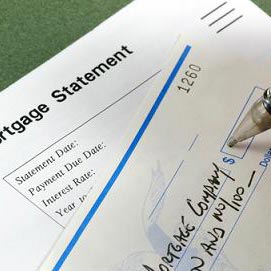 rtgage Statement
Statement Date:
Payment Due Date:
Interest Rate:
Year
1260
$
MORTGAGE COMPANY
AND NO/100